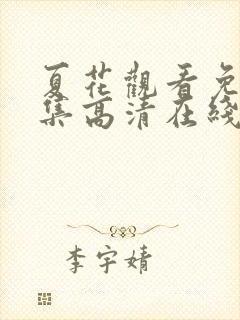 夏花觀看免
集高清在綫
李宇婧